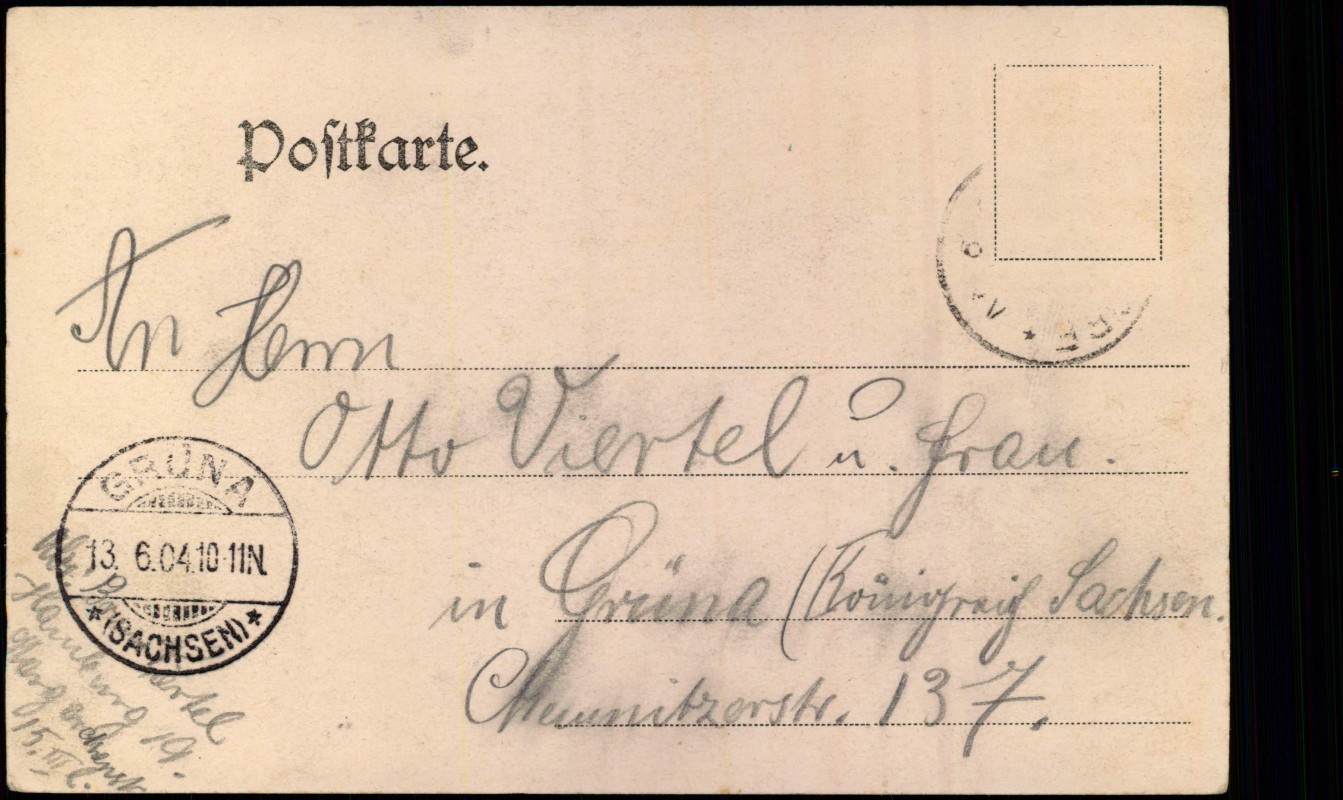 Postkarte.
An Herrn
Otto Viertel u. Frau.
in Grüna (Königreich Sachsen.
Chemnitzerstr. 137.
GRÜNA
13. 6.04.10-11N.
*(SACHSEN)*
Hamburg 19.
15. III l.